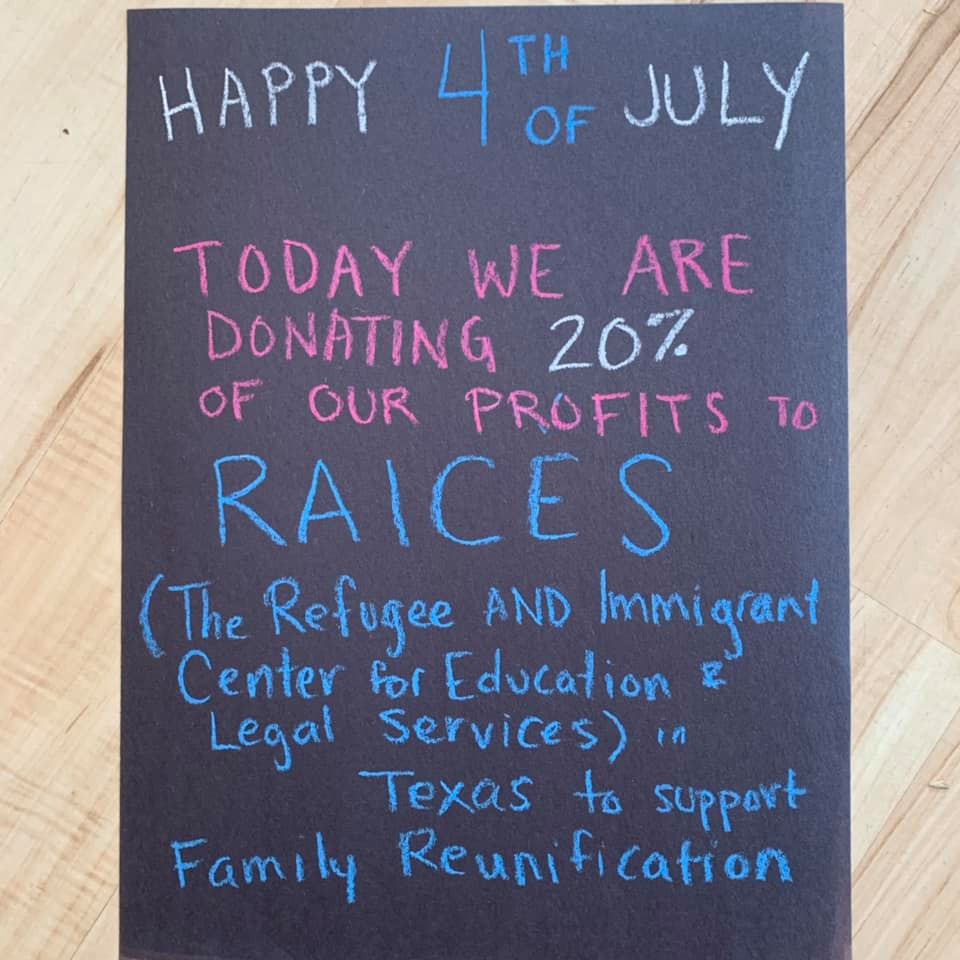 HAPPY 4TH OF JULY
TODAY WE ARE
DONATING 20%
OF OUR PROFITS TO
RAICES
(The Refugee AND Immigrant
Center for Education &
Legal Services) in
Texas to support
Family Reunification